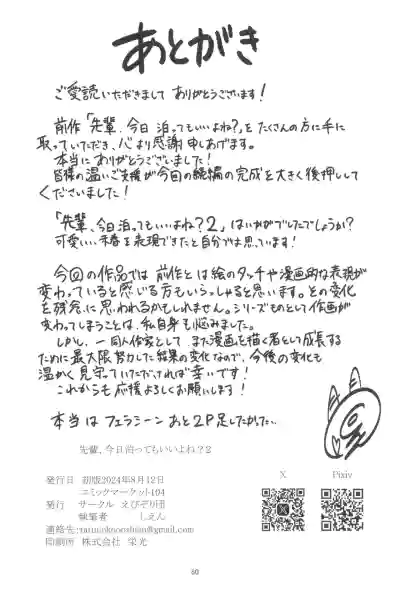 あとがき
ご愛読いただきまして ありがとうございます!
前作「先輩、今日泊ってもいいよね?」を たくさんの方に手に
取っていただき、心より感謝申しあげます。
本当に ありがとうございました!
皆様の温かいご支援が今回の続編の完成を大きく後押しして
くださいました!
「先輩、今日泊ってもいいよね?2」はいかがでしたでしょうか?
可愛い を表現できたと自分では思っています!
今回の作品では 前作とは絵のタッチや漫画的な表現が
変わっていると感じる方もいらっしゃると思います。との変化
を残念に思われるかもしれません。シリーズものとして作画が
変わってしまうことは、私自身も悩みました。
しかし、一同人作家として、また漫画を描く者として成長する
ために最大限努力した結果の変化なので、今後の変化も
温かく見守っていただければ幸いです!
これからも応援よろしくお願いします!
本当は フェラシーン あと2P足したかった…
先輩、今日泊ってもいいよね?2
発行日 初版2024年8月12日
コミックマーケット104
発行 サークル えびぞり団
執筆者 しえん
連絡先:
印刷所 株式会社 栄光
X
Pixiv
60